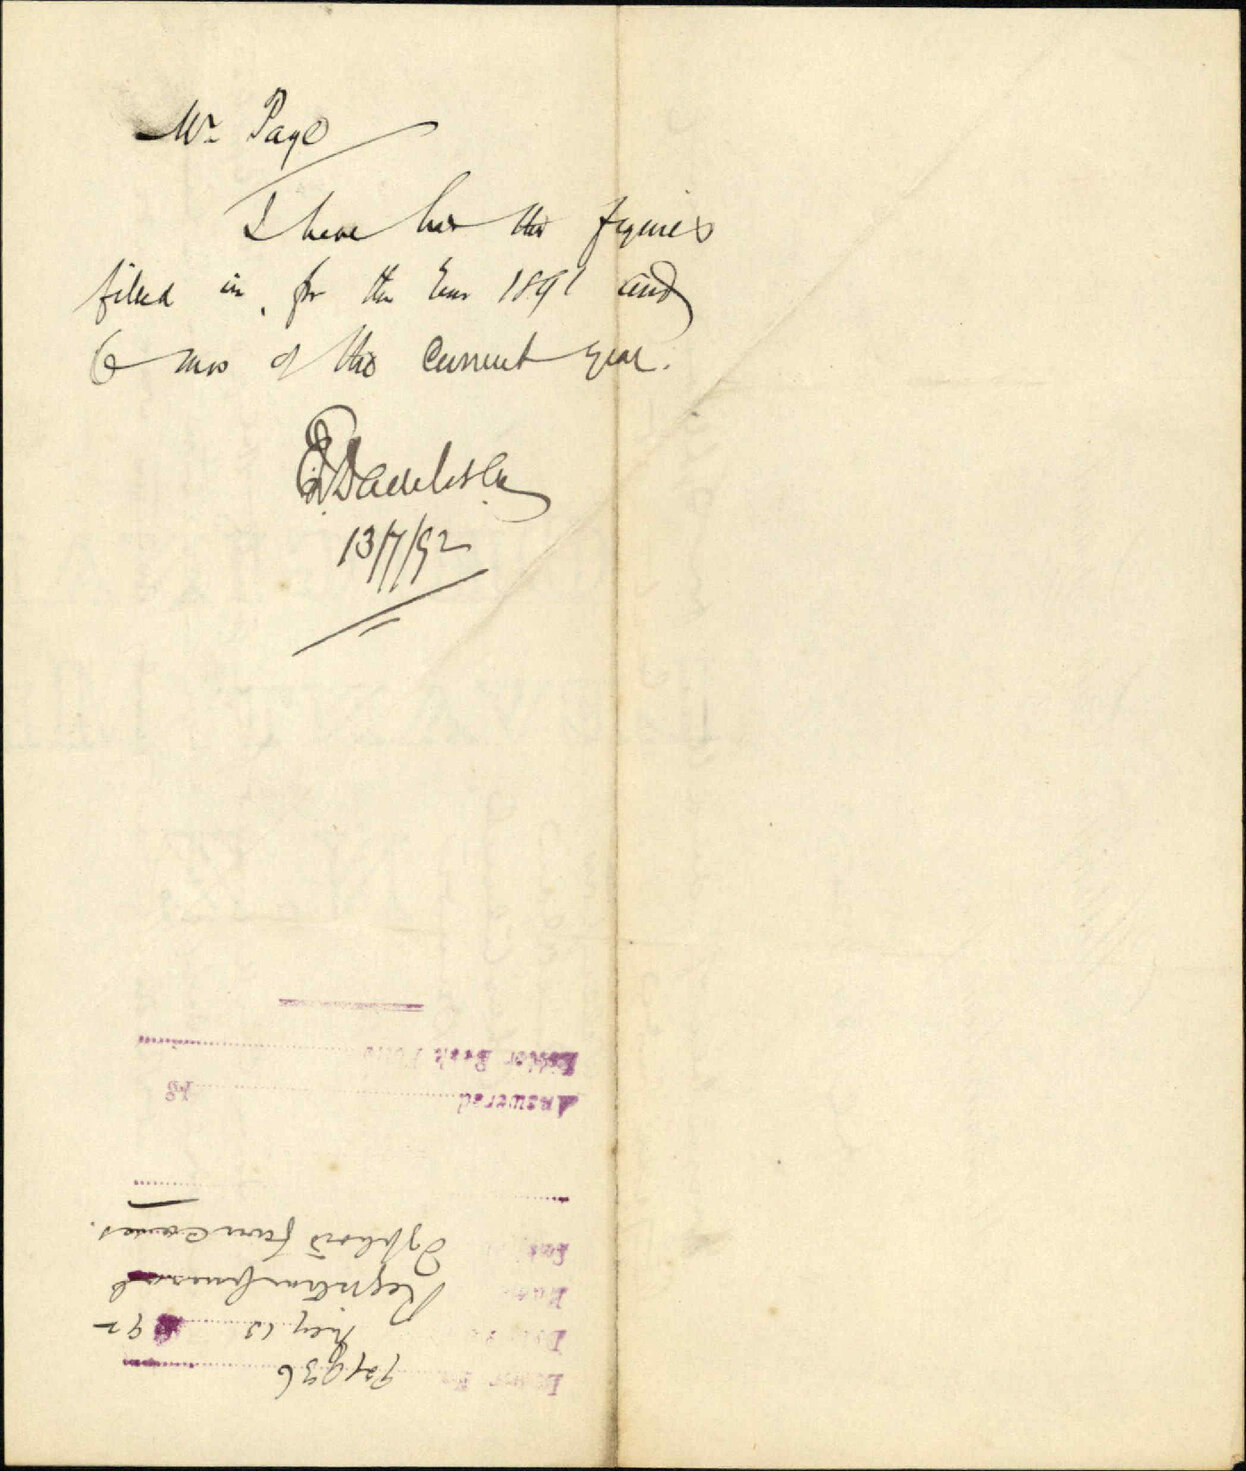 Mr Page
I have had the figures
filled in, for the Year 1891 and
6 mos of the Current year.
13/7/92
Letter No.
92/936
Date
July 13 92
Name
Registrar General
Subject
Typhoid fever cases.
Answered
Letter Book Folio